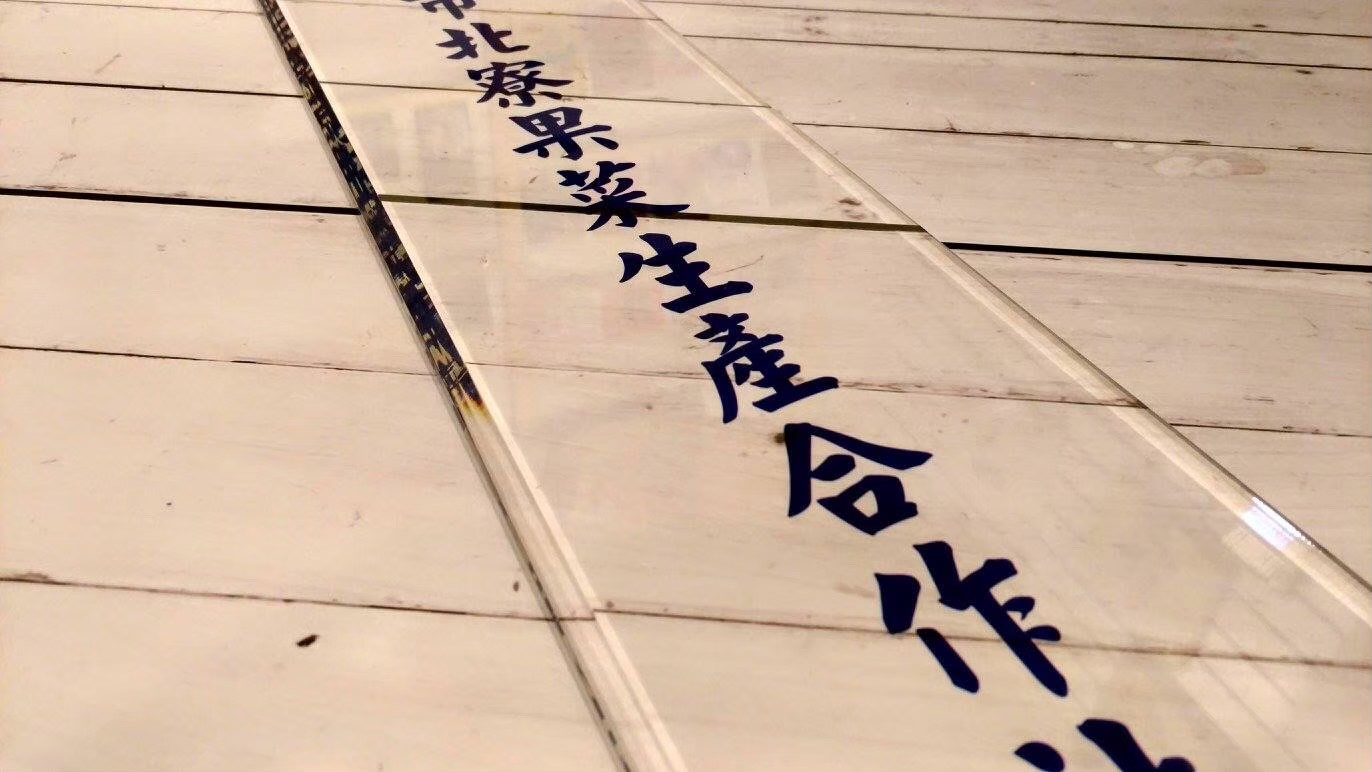 市北寮果菜生產合作